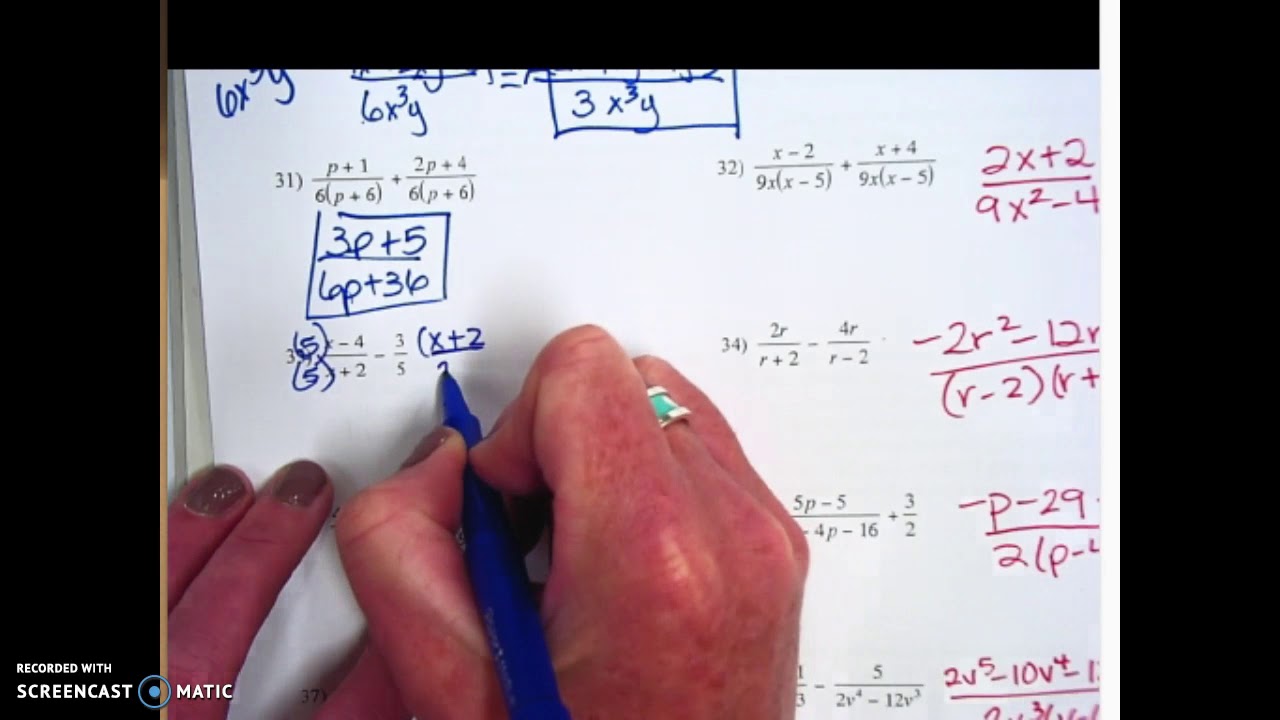 6x³y
6x³y
=
3x³y
31) (p + 1)/(6(p + 6)) + (2p + 4)/(6(p + 6))
32) (x − 2)/(9x(x − 5)) + (x + 4)/(9x(x − 5))
2x+2
9x²−4
3p+5
6p+36
(5) − 4 − 3/5 (x+2
(5) + 2
34) 2r/(r + 2) − 4r/(r − 2)
−2r²−12r
(r−2)(r+
5p − 5
4p − 16
+ 3/2
−p−29
2(p−4
37)
1/3 − 5/(2v⁴ − 12v³)
2v⁵−10v⁴−1
RECORDED WITH
SCREENCAST MATIC